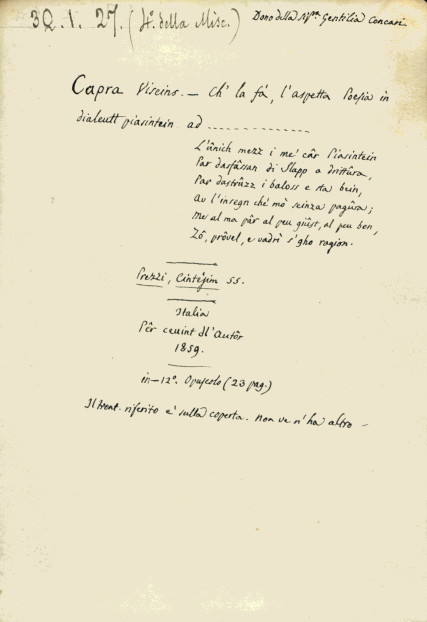 3Q.1.27. (4º. della Misc.) Dono della Sigª. Gentilia Concari
Capra Viseins. — Ch' la fá, l'aspetta Poesia in
dialeutt piasintein ad ...............
L'ûnich mezz i me' câr Piasintein
Par dasfâssan di Slapp a drittûra,
Par dastrûzz i baloss e sta bein,
Av l'insegn ché mò seinza pagûra;
Me al ma pâr al peu giüst, al peu bon,
Zô, prôvel, e vadrì s'gho ragion.
Prezzi, Cintêsim 55.
Italia
Pêr ceuint dl'Autôr
1859.
in-12º. Opuscolo (23 pag.)
Il front. riferito e' sulla coperta. Non ve n'ha altro –